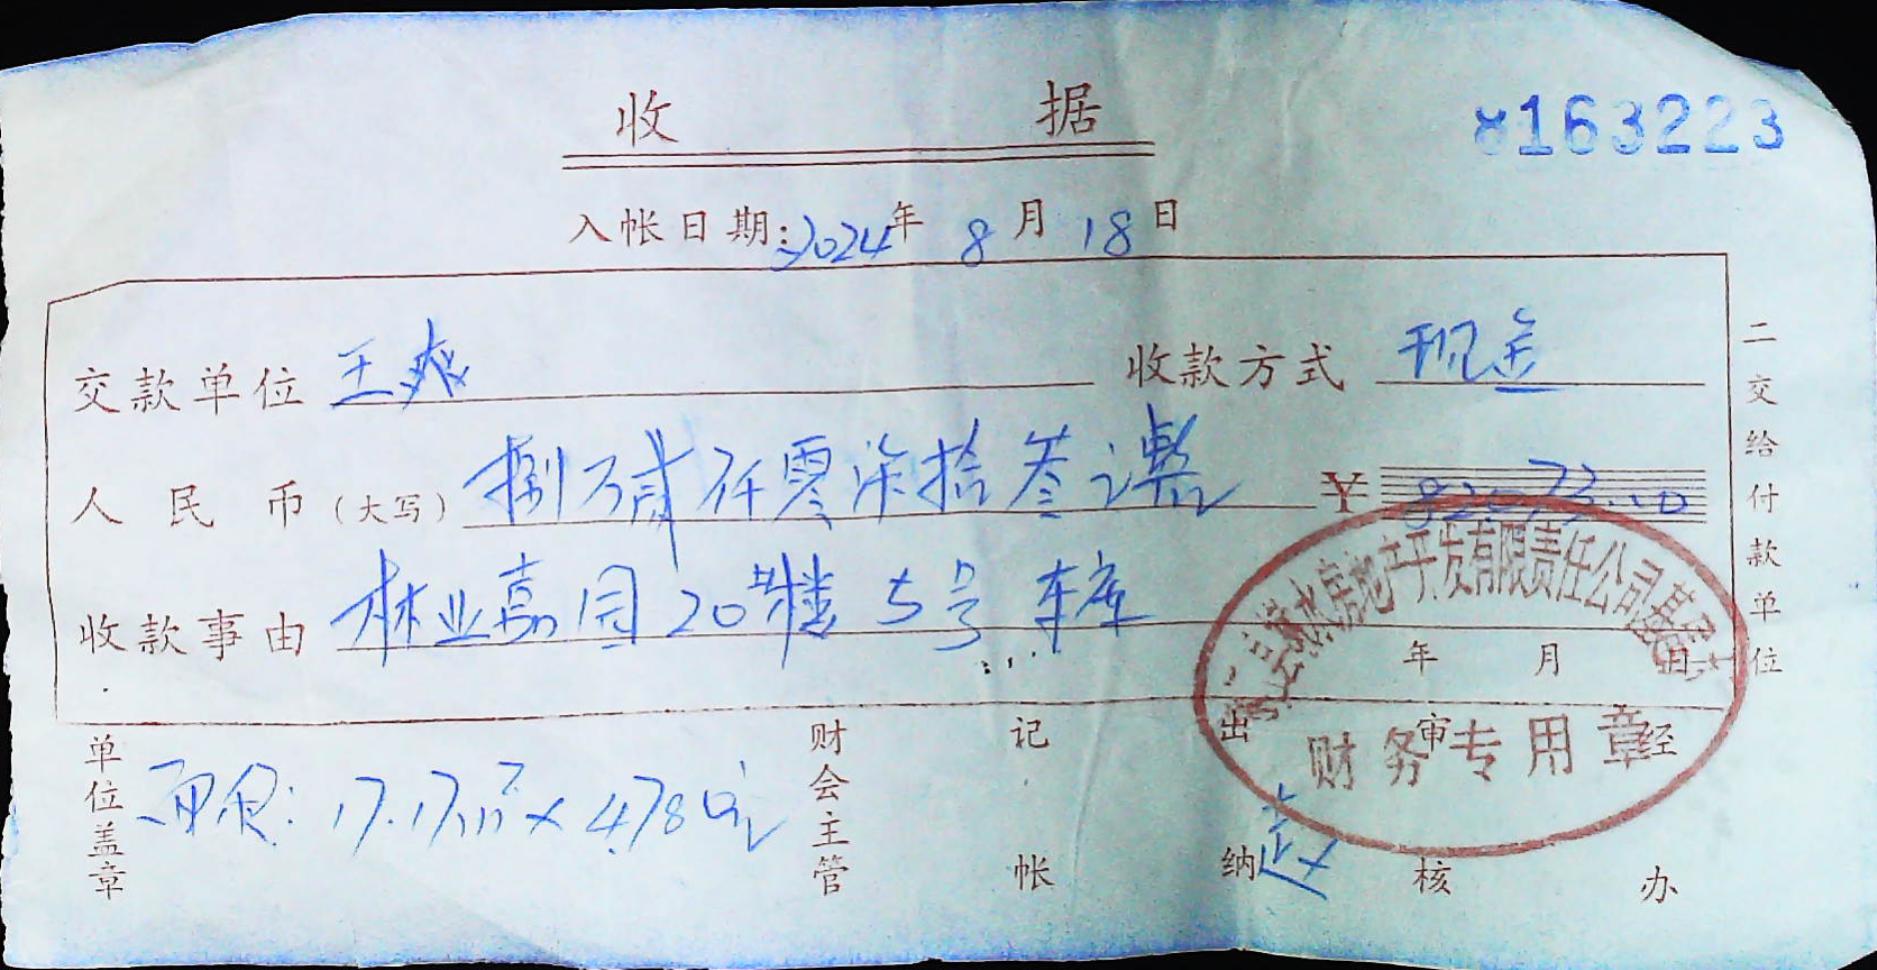 收 据
163223
入帐日期:2024年 8月 18日
交款单位 王爽 收款方式 现金
人民币(大写) 捌万贰仟零柒拾叁元整 ¥ 82073.00
收款事由 林业嘉园20#楼 5号 车库
年 月 日
二交给付款单位
房地产开发有限责任公司
财务专用章
单位盖章 财会主管 记帐 出纳 审核 经办
面积: 17.17m² × 4780元